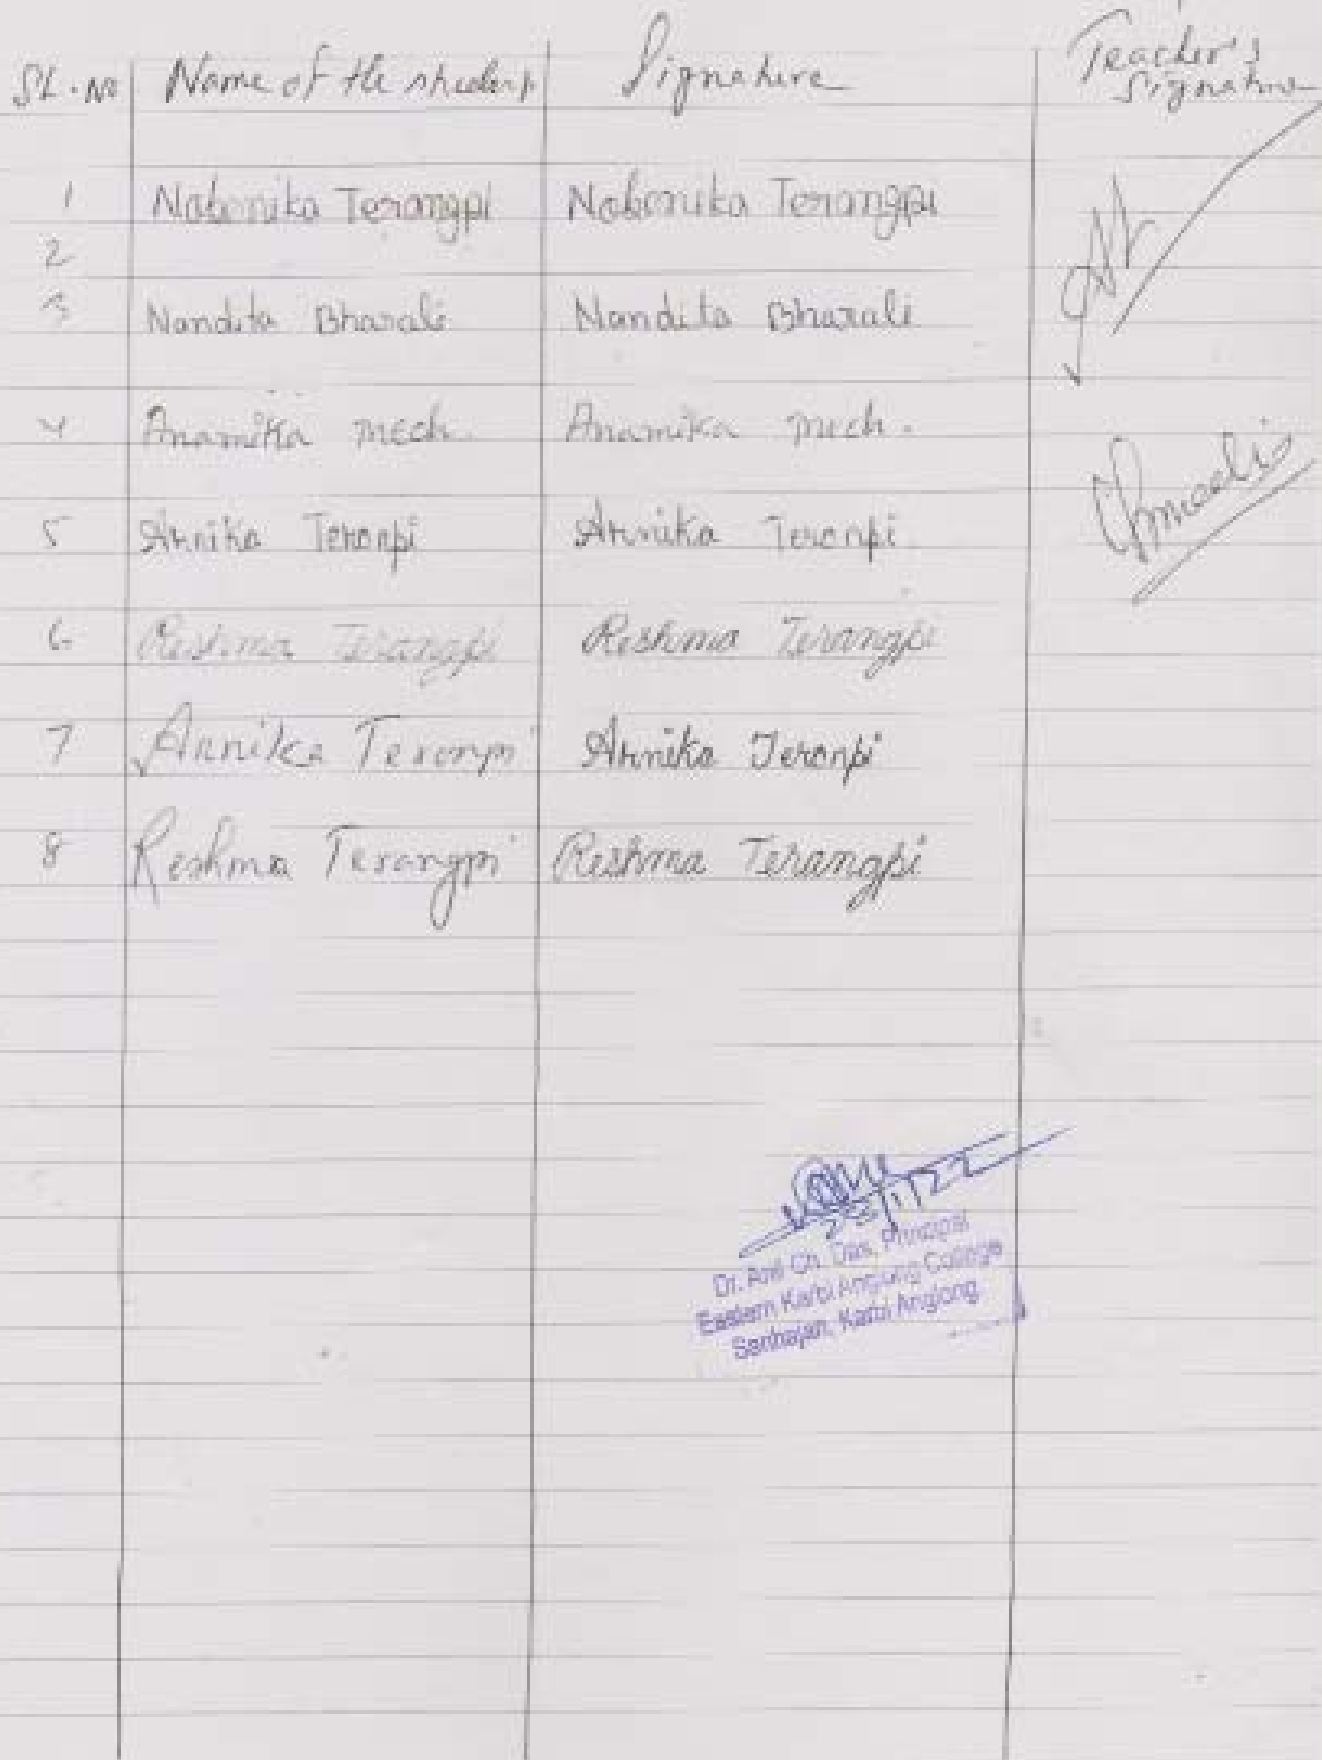 SL. No Name of the student Signature Teacher's Signature
1 Nabonika Terangpi Nabonika Terangpi
2
3 Nandita Bharali Nandita Bharali
4 Anamika Mech. Anamika Mech.
5 Arnika Teronpi Arnika Teronpi
6 Reshma Terangpi Reshma Terangpi
7 Arnika Teronpi Arnika Teronpi
8 Reshma Terangpi Reshma Terangpi
Dr. Ch. Das, Principal
Eastern Karbi Anglong College
Sarihajan, Karbi Anglong